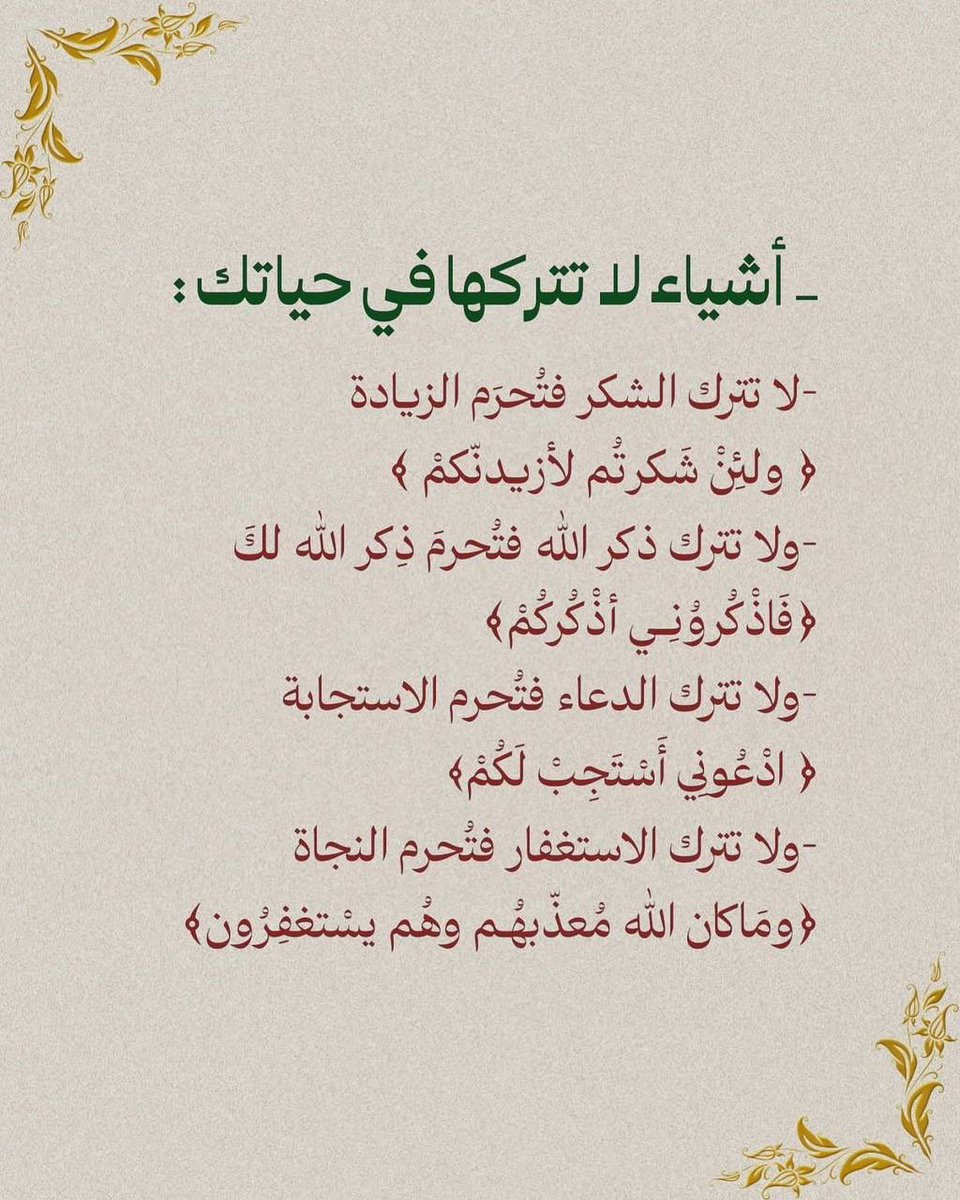 - أشياء لا تتركها في حياتك :
-لا تترك الشكر فتُحرَم الزيادة
﴿ ولئِنْ شَكرتُم لأزيدنّكمْ ﴾
-ولا تترك ذكر الله فتُحرمَ ذِكر الله لكَ
﴿فَاذْكُروُنِـي أذْكُركُمْ﴾
-ولا تترك الدعاء فتُحرم الاستجابة
﴿ ادْعُونِي أَسْتَجِبْ لَكُمْ﴾
-ولا تترك الاستغفار فتُحرم النجاة
﴿ومَاكان الله مُعذّبهُم وهُم يسْتغفِرُون﴾